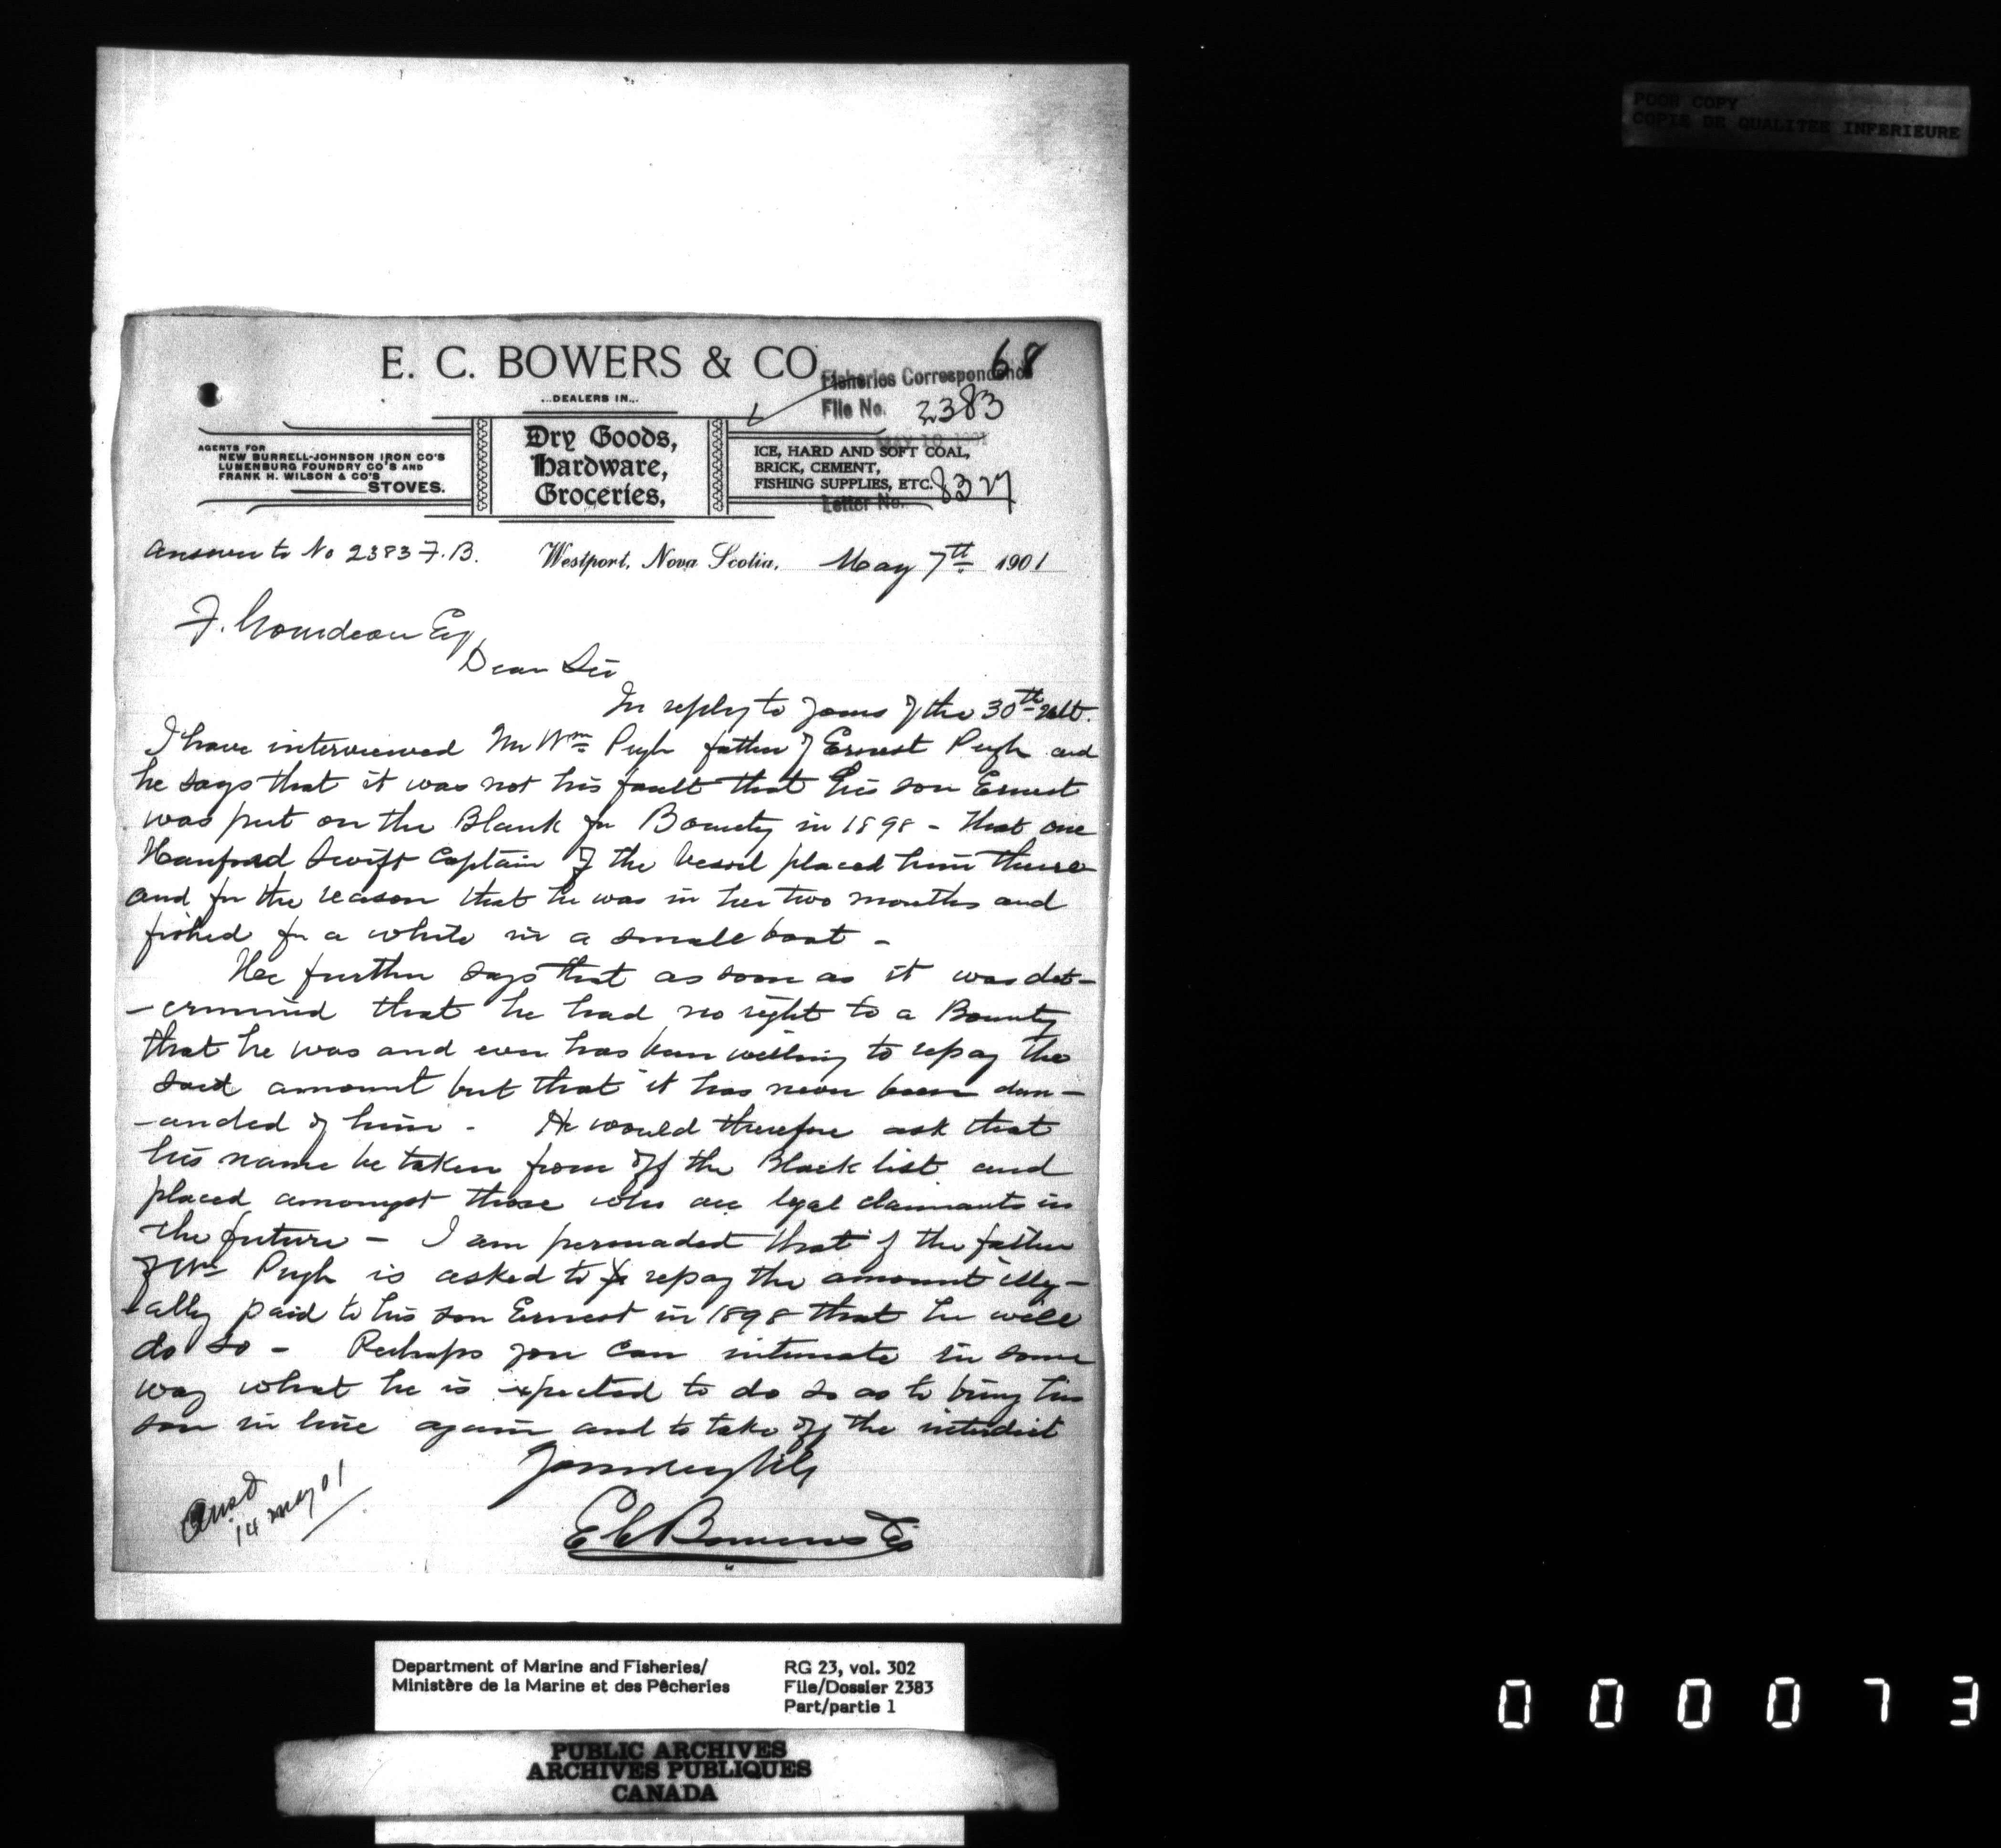 POOR COPY
COPIE DE QUALITEE INFERIEURE
68
E. C. BOWERS & CO.
...DEALERS IN...
Fisheries Correspondence
File No. 2383
MAY 10 1901
8327
Letter No.
AGENTS FOR
NEW BURRELL-JOHNSON IRON CO'S
LUNENBURG FOUNDRY CO'S AND
FRANK H. WILSON & CO'S
STOVES.
Dry Goods,
Hardware,
Groceries,
ICE, HARD AND SOFT COAL,
BRICK, CEMENT,
FISHING SUPPLIES, ETC.
Answer to No 2383 F.B.
Westport, Nova Scotia, May 7th 1901
F. Gourdeau Esq
Dear Sir
In reply to yours of the 30th ult.
I have interviewed Mr Wm Pugh father of Ernest Pugh and
he says that it was not his fault that his son Ernest
was put on the Blank for Bounty in 1898 - that one
Hanford Swift Captain of the vessel placed him there
and for the reason that he was in her two months and
fished for a while in a small boat -
He further says that as soon as it was det-
-ermined that he had no right to a Bounty
that he was and ever has been willing to repay the
said amount but that it has never been dem-
-anded of him - He would therefore ask that
his name be taken from off the Black list and
placed amongst those who are legal claimants in
the future - I am persuaded that if the father
of Wm Pugh is asked to repay the amount illeg-
-ally paid to his son Ernest in 1898 that he will
do so - Perhaps you can intimate in some
way what he is expected to do so as to bring his
son in line again and to take off the interdict
Yours very truly
E C Bowers & Co
Ansd
14 May 01
Department of Marine and Fisheries/
Ministère de la Marine et des Pêcheries
RG 23, vol. 302
File/Dossier 2383
Part/partie 1
PUBLIC ARCHIVES
ARCHIVES PUBLIQUES
CANADA
000073